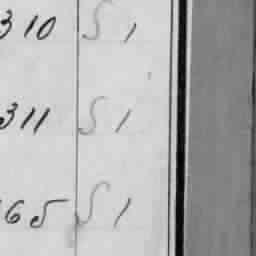 310 S 1
311 S 1
65 S 1